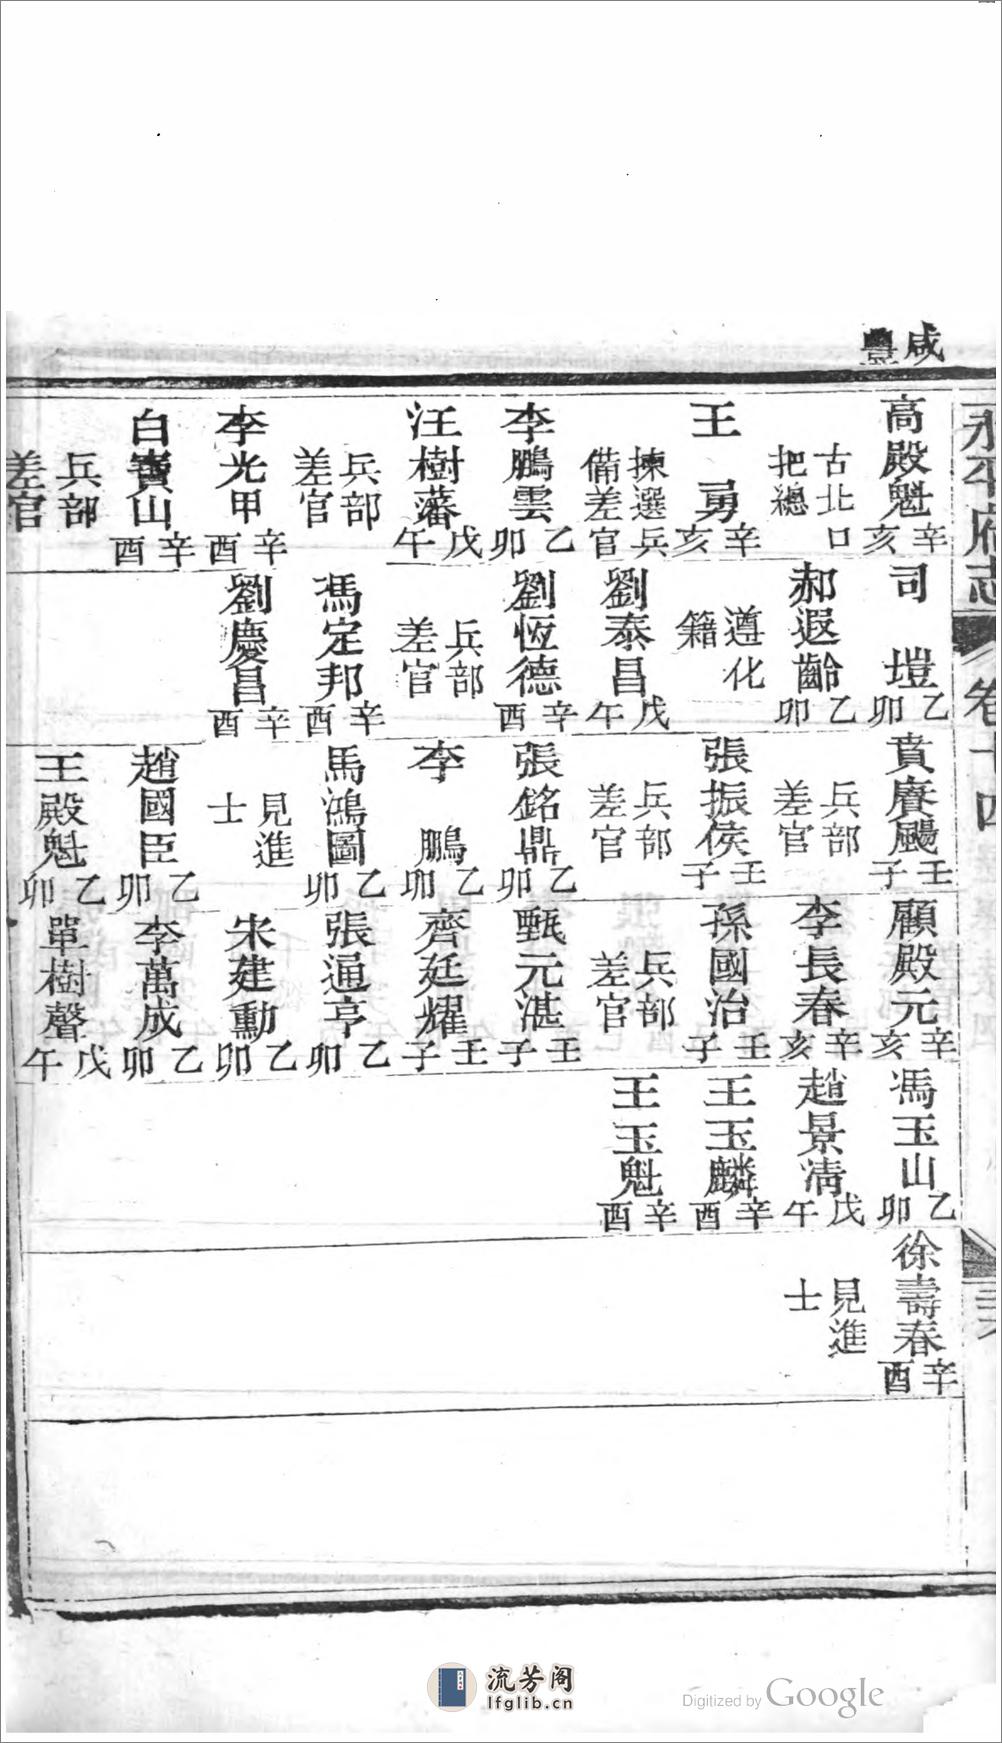 咸豐
永平府志 卷十四
高殿魁 辛亥
古北口把總
王勇 辛亥
揀選兵備差官
李鵬雲 乙卯
汪樹藩 戊午
兵部差官
李光甲 辛酉
白寶山 辛酉
兵部差官
司塏 乙卯
郝遐齡 乙卯
遵化籍
劉泰昌 戊午
劉恆德 辛酉
兵部差官
馮定邦 辛酉
劉慶昌 辛酉
賁賡颺 壬子
兵部差官
張振侯 壬子
兵部差官
張銘鼎 乙卯
李鵬 乙卯
馬鴻圖 乙卯
見進士
趙國臣 乙卯
王殿魁 乙卯
顧殿元 辛亥
李長春 辛亥
孫國治 壬子
兵部差官
甄元湛 壬子
齊廷耀 壬子
張通亨 乙卯
宋建勳 乙卯
李萬成 乙卯
單樹聲 戊午
馮玉山 乙卯
趙景清 戊午
王玉麟 辛酉
王玉魁 辛酉
徐壽春 辛酉
見進士
流芳阁
lfglib.cn
Digitized by Google